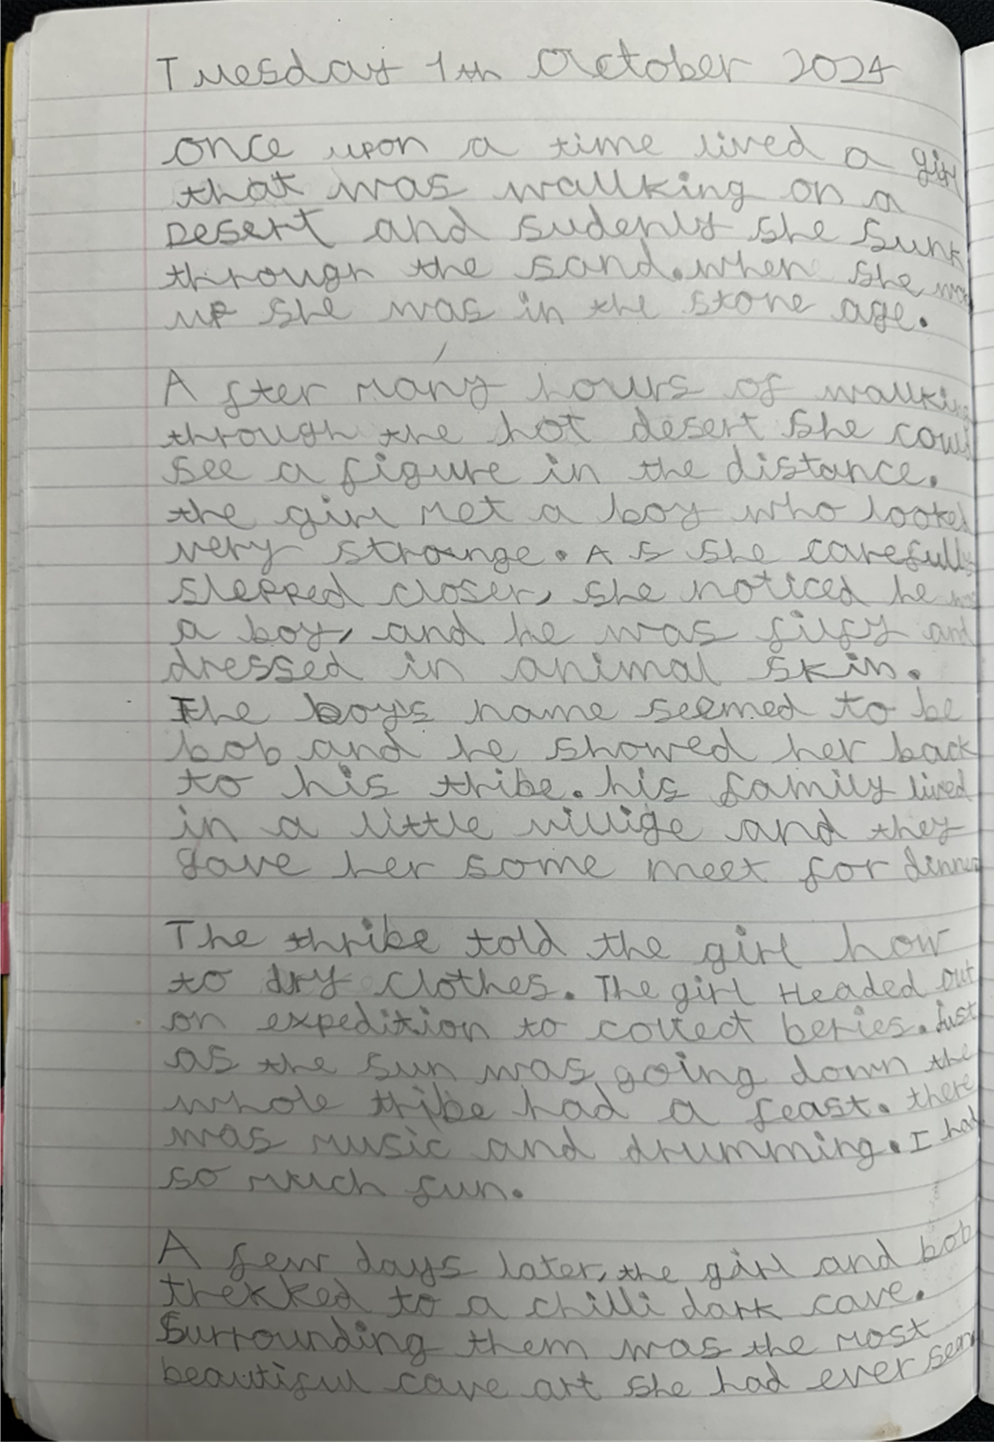 Tuesday 1th October 2024
once upon a time lived a girl
that was wallking on a
Desert and sudenly she sunk
through the sand. when she
up she was in the stone age.
After many hours of wallking
through the hot desert she could
see a figure in the distance.
the girl met a boy who looked
very strounge. As she carefully
stepped closer, she noticed he was
a boy, and he was filfy and
dressed in animal skin.
The boys name seemed to be
bob and he showed her back
to his thribe. his family lived
in a little villige and they
gave her some meet for dinner
The thribe told the girl how
to dry clothes. The girl Headed out
on expedition to collect beries. Just
as the sun was going down the
whole tribe had a feast. there
was music and drumming. I had
so much fun.
A few days later, the girl and bob
trekked to a chilli dark cave.
Surrounding them was the most
beautiful cave art she had ever seen